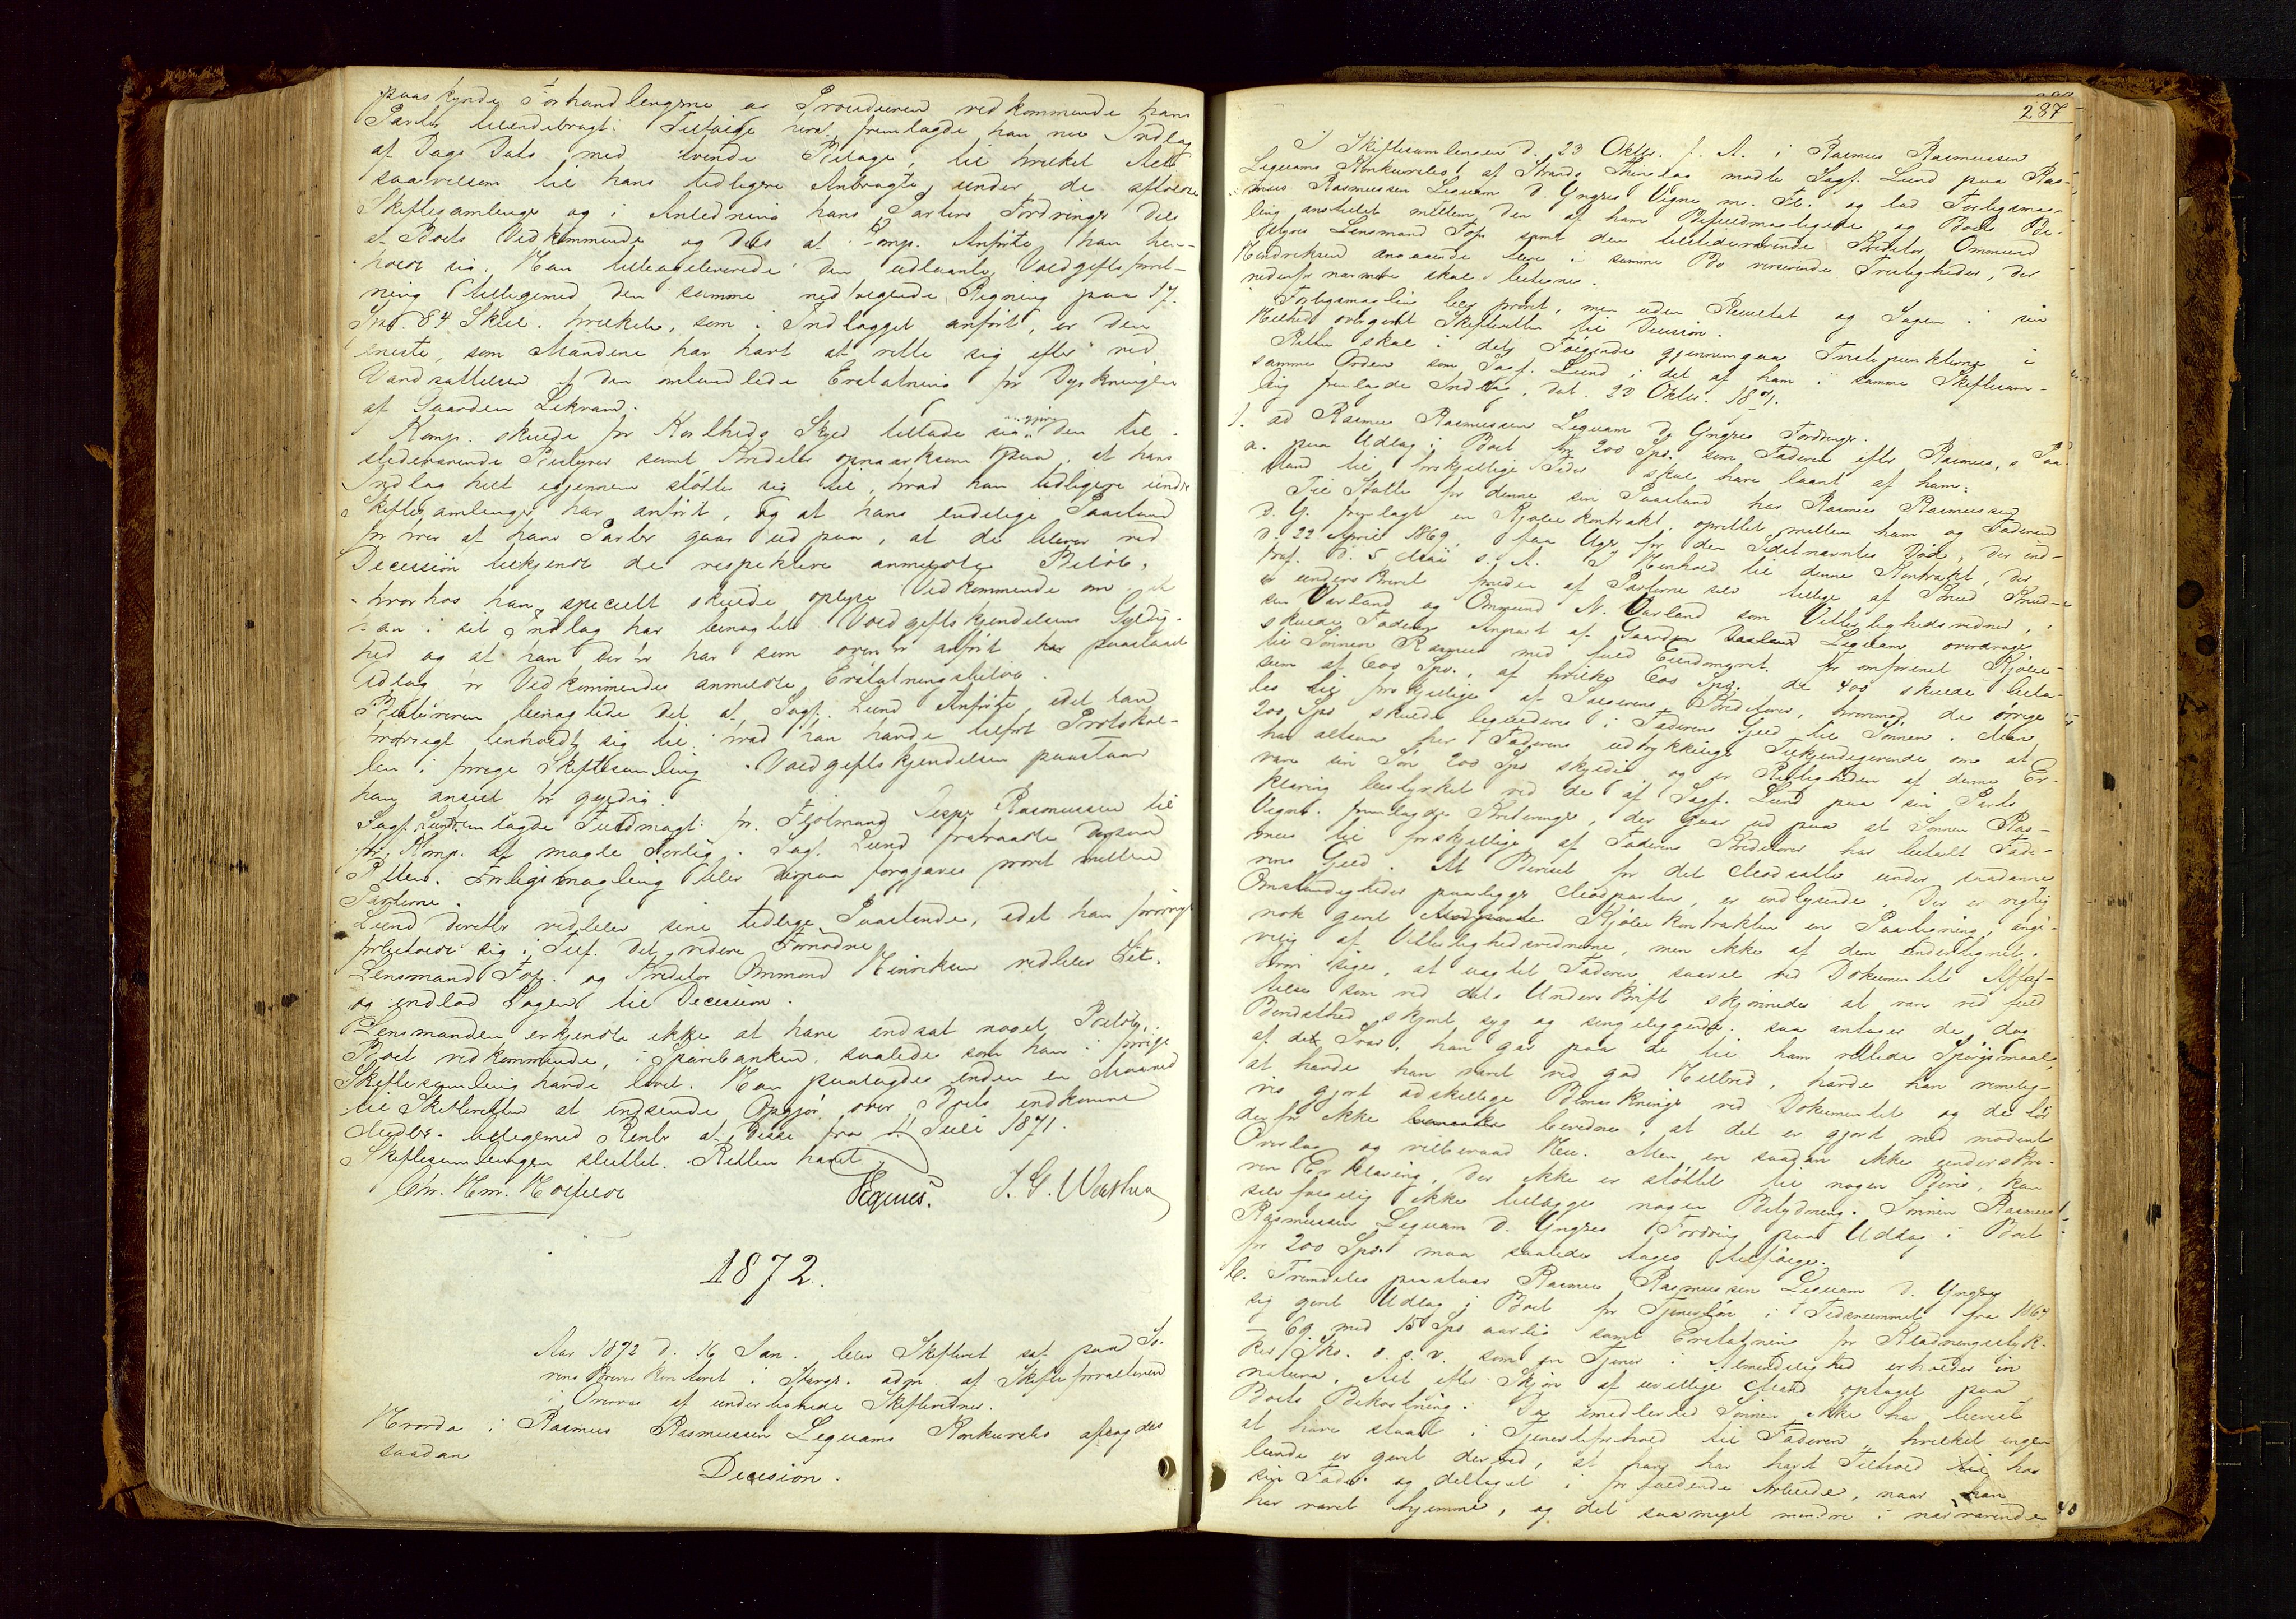 paaskynde Forhandlingerne og Proceduren vedkommende hans
Parter tilendebragt. Ifølge heraf fremlagde han nu Indlæg
af Dags Dato med tvende Bilage, til hvilket Alt
saavelsom til hans tidligere Anbragte under de afholdte
Skiftesamlinger og i Anledning hans Parters Fordringer Dels
at Boets Vedkommende og Dels at Komp. Anførte han hen-
holdt sig. Han tilbageleverede den udlaante Voldgiftsforret-
ning tillige med den samme vedhæftede Regning paa 17
Spd. 84 Skill. hvilket, som i Indlægget anført, er den
eneste, som Mændene har havt at rette sig efter ved
af Gaarden Lekvam.
Komp. skulde for Kortheds Skyld tillade sig at gjøre den til-
stedeværende Bestyrer samt Kreditor opmærksom paa, at hans
Indlæg helt igjennem støtter sig til, hvad han tidligere under
Skiftesamlinger har anført, og at hans endelige Paastand
for hver af hans Parter gaar ud paa, at de bliver ved
Decision tilkjendt de respektive anmeldte Beløb,
hvorhos han specielt skulde oplyse Vedkommende om at
han i sit Indlæg har benægtet Voldgiftskjendelsens Gyldig-
hed og at han derfor har som ovenfor anført har paastaaet
Udlæg for Vedkommendes anmeldte Erstatningsbeløb.
Bestyreren benægtede det af Sagf. Lund Anførte, idet han
forøvrigt henholdt sig til hvad han havde tilført Protokol-
len i forrige Skiftesamling. Voldgiftskjendelsen paastaar
han anseet for gyldig.
Sagf. Lund fremlagde Fuldmagt fra Fjølmand Jesper Rasmussen til
for Komp. at mægle Forlig. Sagf. Lund fratraadte derpaa
Retten. Forligsmægling blev derpaa forgjæves prøvet mellem
Parterne.
Lund derefter vedblev sine tidligere Paastande, idet han forøvrigt
forbeholdt sig i Tilf. det videre Fornødne.
Lensmand Top og Kreditor Ommund Hinriksen vedblev Sit
og indlod Sagen til Decision.
Lensmanden erkjendte ikke at have indsat noget Beløb,
Boet vedkommende, i Sparebanken saaledes som han i forrige
Skiftesamling havde lovet. Han paalagdes inden en Maaned
til Skifteretten at indsende Opgjør over Boets indkomne
Midler tilligemed Renter af disse fra 4 Juli 1871.
Skiftesamlingen sluttet. Retten hævet
Chr. Hm. Holfeldt
1872.
Aar 1872 d. 16 Jan. blev Skifteret sat paa So-
renskriverkontoret i Stavgr. adm. af Skifteforvalteren
i Overvær af undertegnede Skiftevidner.
Hvorda i Rasmus Rasmussen Leguams Konkursbo afsagdes
saadan
Decision.
287
I Skiftesamlingen d. 23 Oktbr. f. A. i Rasmus Rasmussen
Leguams Konkursbo af Strands Thinglag mødte Sagf. Lund paa Ras-
mus Rasmussen Leguam d. Yngres Vegne m. Fl. og lod Forligsmæg-
ling anstillet mellem den af ham Befuldmægtigede og Boets Be-
styrer Lensmand Top samt den tilstedeværende Kreditor Ommund
Hendriksen angaaende flere i samme Bo verserende Tvistigheder, der
nedenfor nærmere skal betegnes.
Forligsmægling blev prøvet, men uden Resultat og Sagen i sin
Helhed overgivet Skifteretten til Decision.
Retten skal i det Følgende gjennemgaa Tvistepunkterne i
samme Orden som Sagf. Lund i det af ham i samme Skiftesam-
ling fremlagde Indlæg, dat. 23 Oktbr. 1871.
1. ad Rasmus Rasmussen Leguam d. Yngres Fordringer.
a. paa Udlæg i Boet for 200 Spd. som Faderen efter Rasmus's Paa-
stand til forskjellige Tider skal have laant af ham:
Til Støtte for denne sin Paastand har Rasmus Rasmussen
d. Y. fremlagt en Kjøbekontrakt, oprettet mellem ham og Faderen
d. 22 April 1869, faa Uger før den Sidstnævntes Død, der ind-
traf d. 5 Mai s. A. I Henhold til denne Kontrakt, der
er underskrevet foruden af Parterne selv tillige af Knud Knud-
sen Varland og Ommund N. Varland som Vitterlighedsvidner,
skulde Faderens Anpart af Gaarden Leguam overdrages
til Sønnen Rasmus med fuld Eiendomsret for omforenet Kjøbe-
sum af 600 Spd., af hvilke 600 Spd. de 400 skulde beta-
les til forskjellige af Sælgerens Kreditorer, hvorimod de øvrige
200 Spd skulde liqvideres i Faderens Gjeld til Sønnen. Man
har altsaa her Faderens udtrykkelige Tilkjendegivende om at
være sin Søn 200 Spd skyldig og er Rigtigheden af denne Er-
klæring bestyrket ved de af Sagf. Lund paa sin Parts
Vegne fremlagde Kvitteringer, der gaar ud paa at Sønnen Ras-
mus til forskjellige af Faderens Kreditorer har betalt Fade-
rens Gjeld. At Beviset for det Modsatte under saadanne
Omstændigheder paaligger Modparten, er indlysende. Der er rigtig
nok givet Kjøbekontrakten en Paategning, angi-
velig af Vitterlighedsvidnerne, men ikke af dem undertegnet,
hvori siges, at uagtet Faderen saavel ved Dokumentets Affat-
telse som ved dets Underskrift skjønnedes at være ved fuld
Bevidsthed, skjønt syg og sengeliggende, saa antager de dog
af det Svar, han gav paa de til ham rettede Spørgsmaal,
at havde han været ved god Helbred, havde han rimelig-
vis gjort adskillige Bemærkninger ved Dokumentet og de tør
derfor ikke bevidne, at det er gjort med modent
Overlæg og velberaad Hu. Men en saadan ikke underskre-
ven Erklæring, der ikke er støttet til noget Bevis, kan
selvfølgelig ikke tillægges nogen Betydning. Sønnen Rasmus
Rasmussen Leguam d. Yngres Fordring paa Udlæg i Boet
for 200 Spd. maa saaledes tages tilfølge.
b. Fremdeles paastaar Rasmus Rasmussen Leguam d. Yngre
sig givet Udlæg i Boet for Tjenestløn i Tidsrummet fra 1864
— 69 med 15 Spd aarlig samt Erstatning for Klædningsstyk-
ker, Sko o. s. v. som en Tjener i Almindelighed erholder in
natura, Alt efter Skjøn af uvillige Mænd optaget paa
Boets Bekostning. Da imidlertid Sønnen ikke har bevist
at have staaet i Tjenesteforhold til Faderen, hvilket ingen-
lunde er givet derved, at han har havt Tilhold hos
sin Fader og deltaget i forfaldende Arbeide, naar han
har været hjemme, og det saameget mindre i nærværende